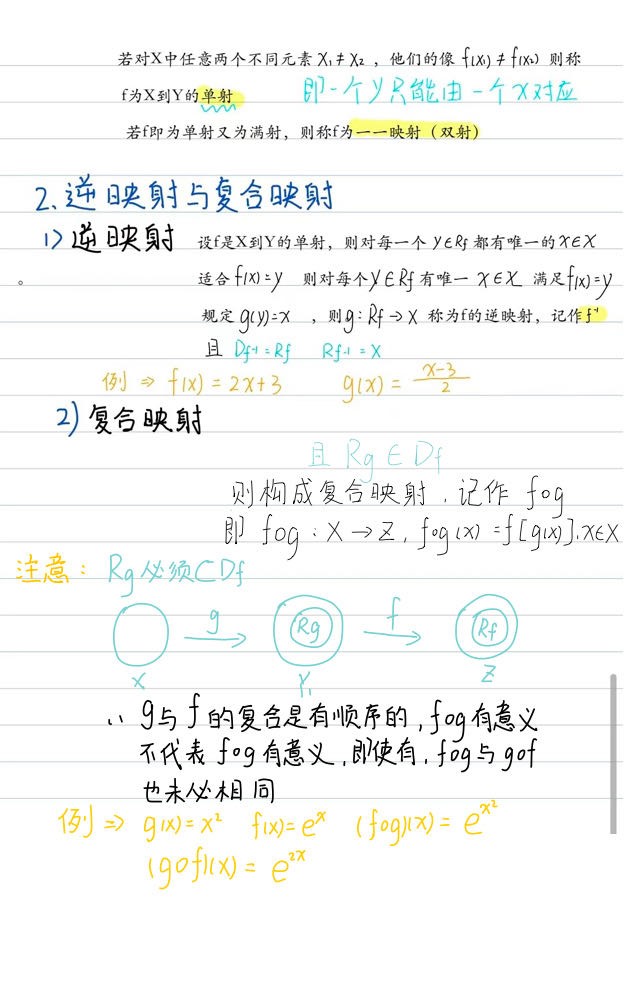 若对X中任意两个不同元素 x₁ ≠ x₂ ，他们的像 f(x₁) ≠ f(x₂) 则称
f为X到Y的单射 即一个y只能由一个x对应
若f即为单射又为满射，则称f为一一映射（双射）
2、逆映射与复合映射
1) 逆映射 设f是X到Y的单射，则对每一个 y∈Rf 都有唯一的 x∈X
适合 f(x)=y 则对每个 y∈Rf 有唯一 x∈X 满足 f(x)=y
规定 g(y)=x ，则 g：Rf → X 称为f的逆映射，记作 f⁻¹
且 Df⁻¹ = Rf Rf⁻¹ = X
例 ⇒ f(x) = 2x+3 g(x) = (x-3)/2
2) 复合映射
且 Rg ∈ Df
则构成复合映射，记作 fog
即 fog : X → Z , fog(x) = f[g(x)], x∈X
注意： Rg必须⊂Df
g f
Rg Rf
X Y₁ Z
∴ g与f的复合是有顺序的，fog有意义
不代表 fog有意义，即使有，fog与gof
也未必相同
例 ⇒ g(x) = x² f(x) = eˣ (fog)(x) = e^x²
(gof)(x) = e^2x